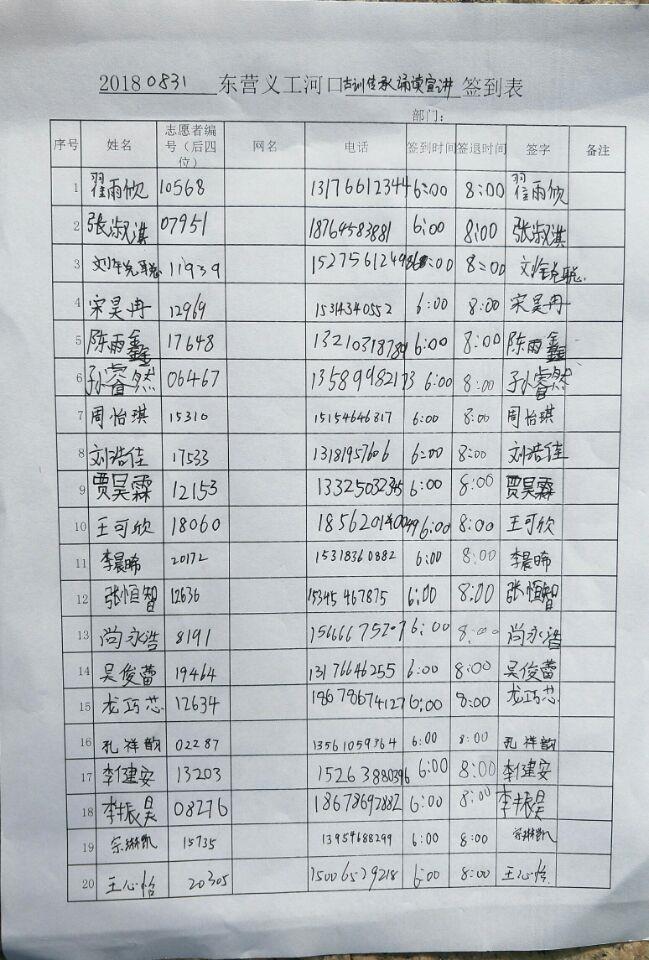 20180831 东营义工河口古训传承诵读宣讲签到表
部门:
序号 姓名 志愿者编号(后四位) 网名 电话 签到时间 签退时间 签字 备注
1 翟雨欣 10568 13176612344 6:00 8:00 翟雨欣
2 张淑淇 07951 18764583881 6:00 8:00 张淑淇
3 11939 6:00 8:00
4 宋昊冉 12969 15314340552 6:00 8:00 宋昊冉
5 陈雨鑫 17648 6:00 8:00 陈雨鑫
6 孙睿然 06467 6:00 8:00 孙睿然
7 周怡琪 15310 15154646817 6:00 8:00 周怡琪
8 刘浩佳 17533 13181957606 6:00 8:00 刘浩佳
9 贾昊霖 12153 13325032345 6:00 8:00 贾昊霖
10 王可欣 18060 6:00 8:00 王可欣
11 李晨晞 20172 15318360882 6:00 8:00 李晨晞
12 张恒智 12636 15345467875 6:00 8:00 张恒智
13 尚永浩 8191 15666675207 6:00 8:00 尚永浩
14 吴俊蕾 19464 13176646255 6:00 8:00 吴俊蕾
15 龙巧芯 12634 18678674127 6:00 8:00 龙巧芯
16 孔祥韵 02287 13561059764 6:00 8:00 孔祥韵
17 李健安 13203 15263880396 6:00 8:00 李健安
18 李振昊 08276 18678692882 6:00 8:00 李振昊
19 宗琳凯 15735 13954688299 6:00 8:00 宗琳凯
20 王心怡 20305 15006529218 6:00 8:00 王心怡